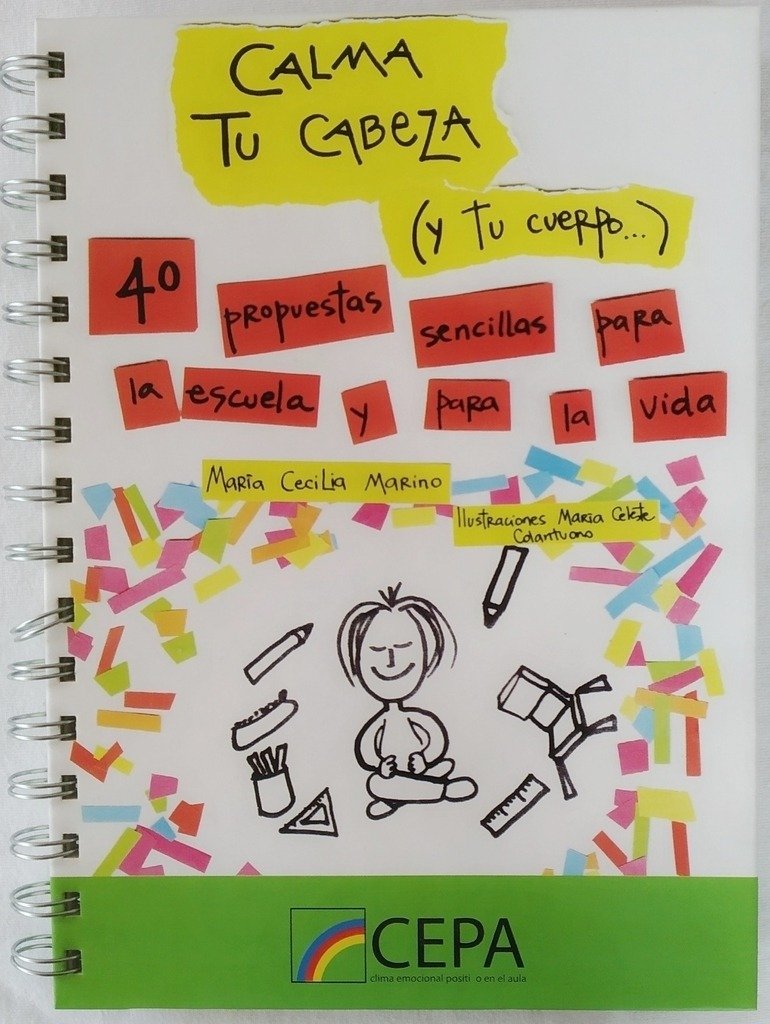 CALMA
TU CABEZA
(y tu cuerpo...)
40 propuestas sencillas para
la escuela y para la vida
María Cecilia Marino
Ilustraciones María Celeste
Colantuono
CEPA
clima emocional positi o en el aula